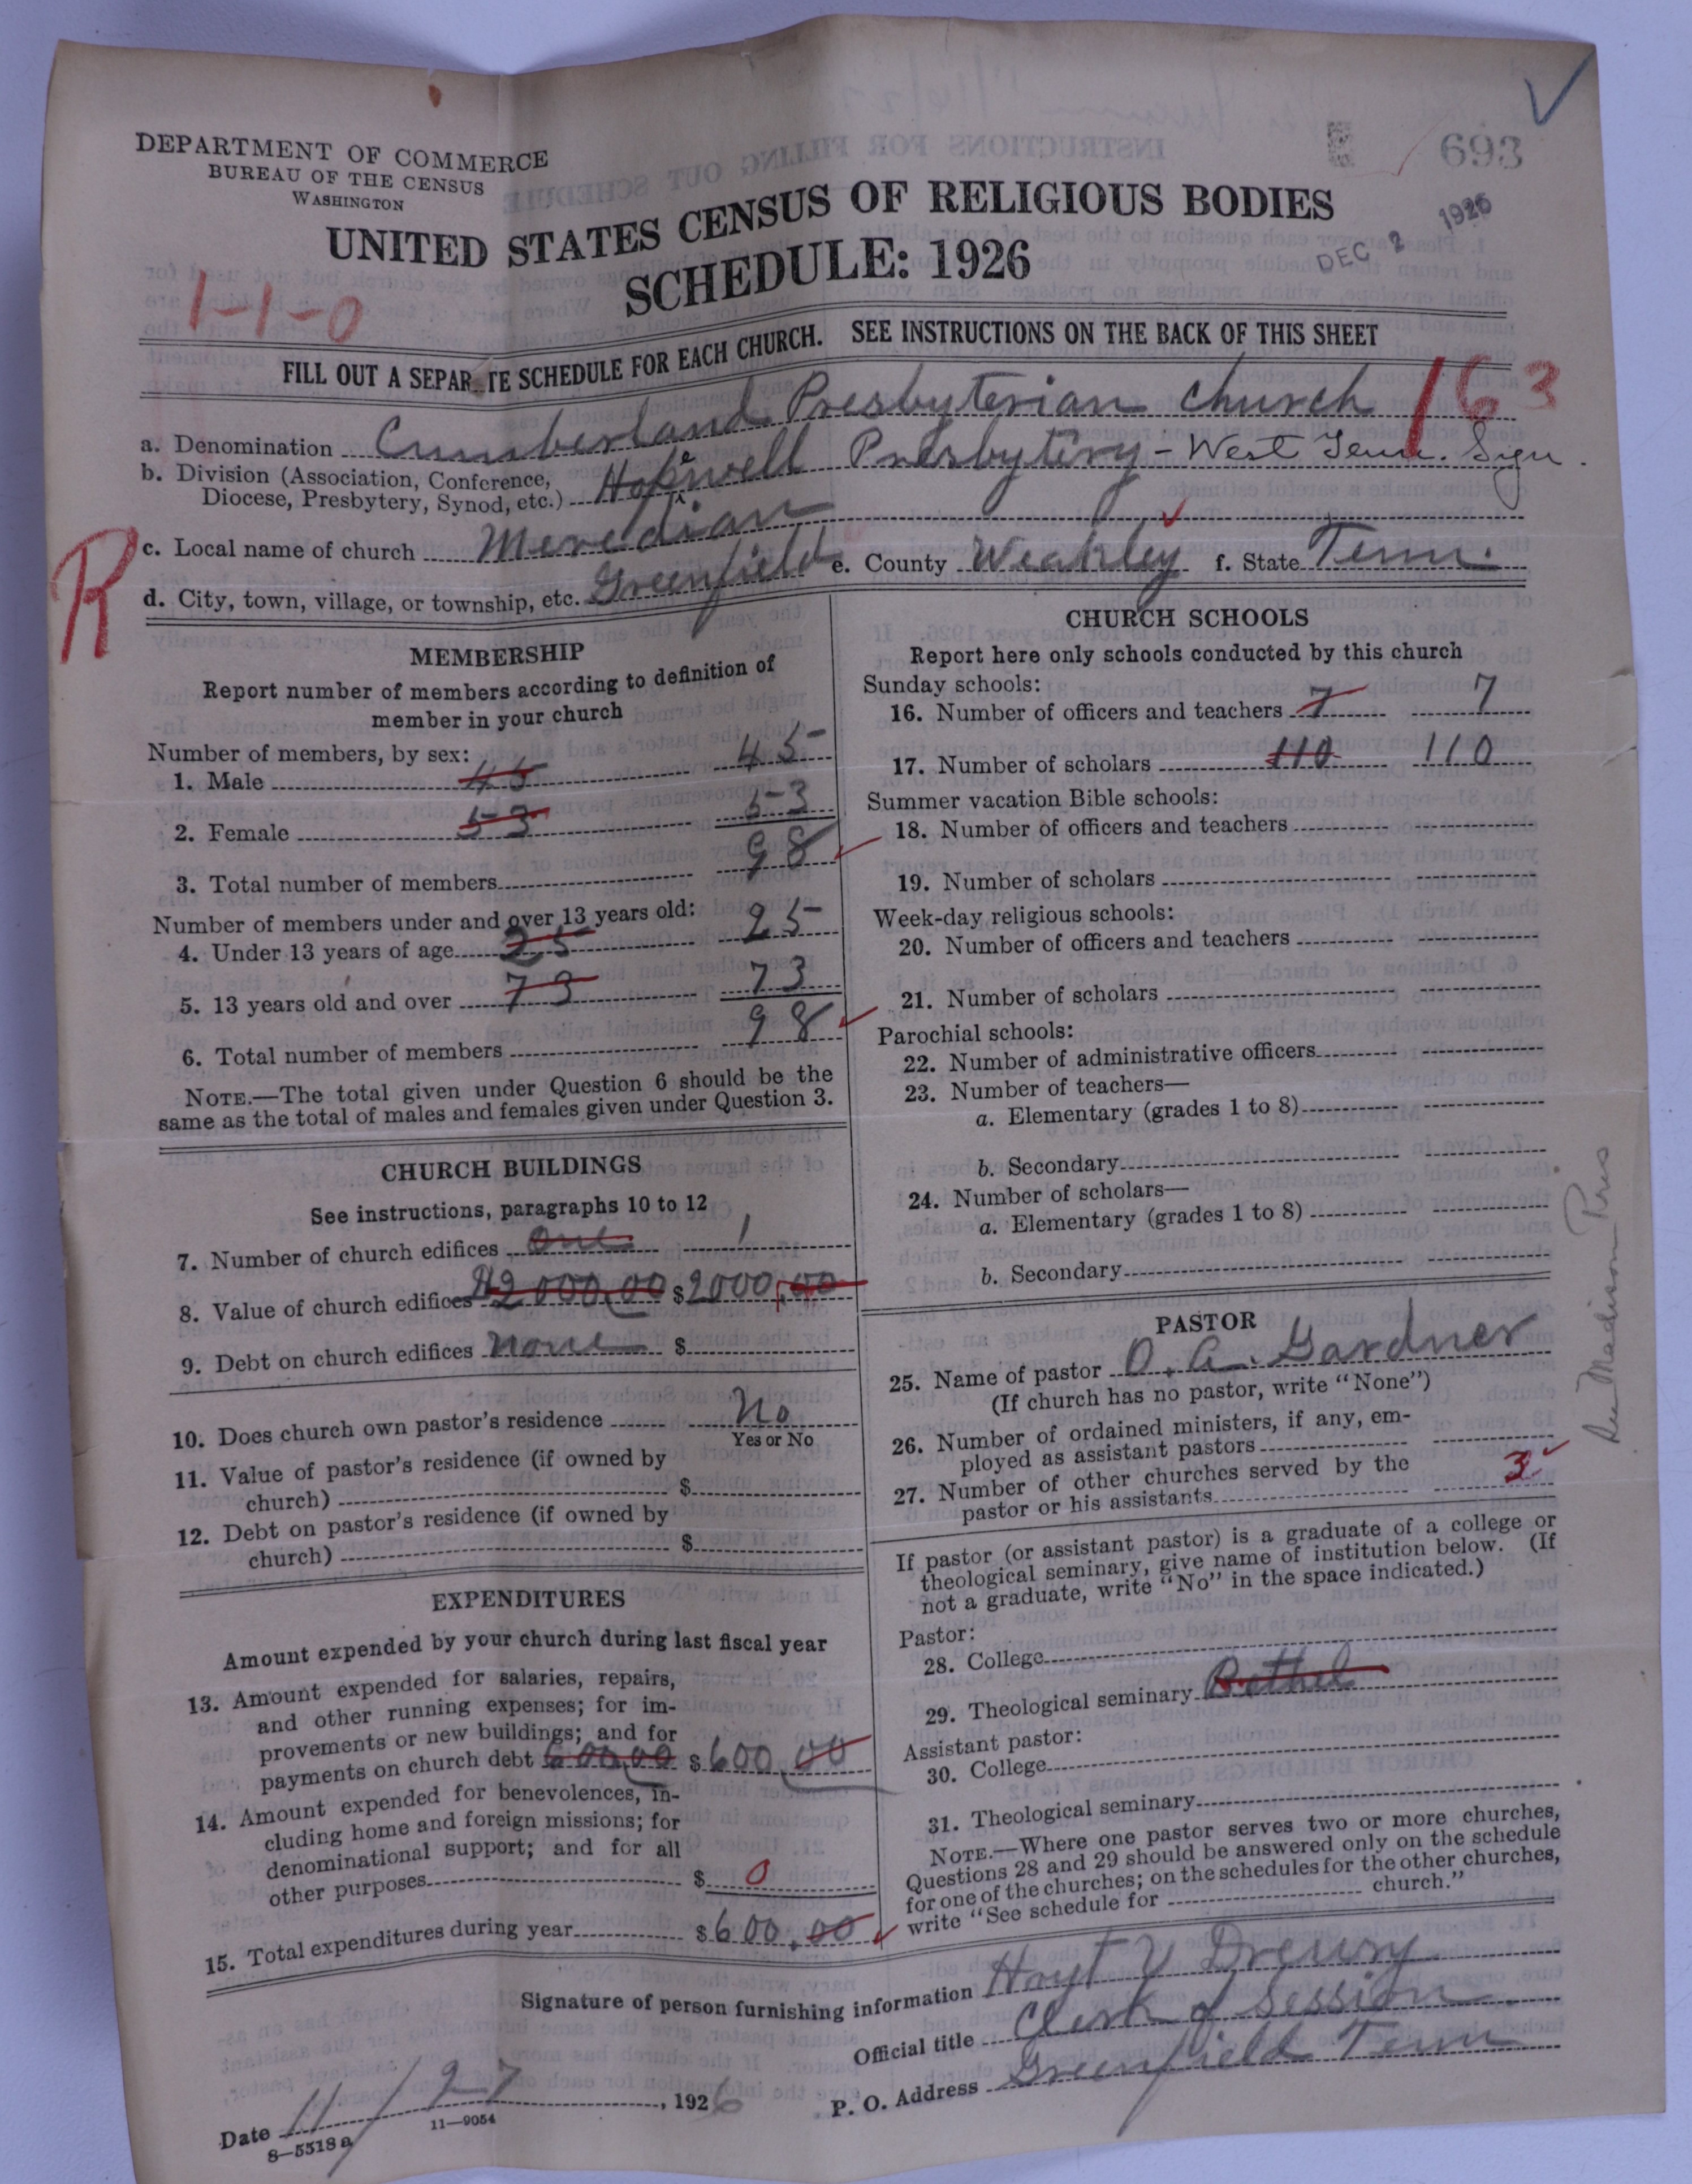 693
DEPARTMENT OF COMMERCE
BUREAU OF THE CENSUS
WASHINGTON
UNITED STATES CENSUS OF RELIGIOUS BODIES
SCHEDULE: 1926
DEC 2 1926
1-1-0
FILL OUT A SEPARATE SCHEDULE FOR EACH CHURCH. SEE INSTRUCTIONS ON THE BACK OF THIS SHEET
163
a. Denomination Cumberland Presbyterian church
b. Division (Association, Conference, Diocese, Presbytery, Synod, etc.) Hopewell Presbytery - West Tenn.
R
c. Local name of church Meredian
d. City, town, village, or township, etc. Greenfield e. County Weakley f. State Tenn.
MEMBERSHIP
Report number of members according to definition of
member in your church
Number of members, by sex:
1. Male 45 45
2. Female 53 53
3. Total number of members 98
Number of members under and over 13 years old:
4. Under 13 years of age 25 25
5. 13 years old and over 73 73
6. Total number of members 98
NOTE.—The total given under Question 6 should be the
same as the total of males and females given under Question 3.
CHURCH BUILDINGS
See instructions, paragraphs 10 to 12
7. Number of church edifices One 1
8. Value of church edifices $2000.00 $2000.00
9. Debt on church edifices none $
10. Does church own pastor's residence No
Yes or No
11. Value of pastor's residence (if owned by
church) $
12. Debt on pastor's residence (if owned by
church) $
EXPENDITURES
Amount expended by your church during last fiscal year
13. Amount expended for salaries, repairs,
and other running expenses; for im-
provements or new buildings; and for
payments on church debt 600.00 $600.00
14. Amount expended for benevolences, in-
cluding home and foreign missions; for
denominational support; and for all
other purposes $ 0
15. Total expenditures during year $600.00
CHURCH SCHOOLS
Report here only schools conducted by this church
Sunday schools:
16. Number of officers and teachers 7 7
17. Number of scholars 110 110
Summer vacation Bible schools:
18. Number of officers and teachers
19. Number of scholars
Week-day religious schools:
20. Number of officers and teachers
21. Number of scholars
Parochial schools:
22. Number of administrative officers
23. Number of teachers—
a. Elementary (grades 1 to 8)
b. Secondary
24. Number of scholars—
a. Elementary (grades 1 to 8)
b. Secondary
PASTOR
25. Name of pastor O. A. Gardner
(If church has no pastor, write "None")
26. Number of ordained ministers, if any, em-
ployed as assistant pastors
27. Number of other churches served by the
pastor or his assistants 3
If pastor (or assistant pastor) is a graduate of a college or
theological seminary, give name of institution below. (If
not a graduate, write "No" in the space indicated.)
Pastor:
28. College
29. Theological seminary Bethel
Assistant pastor:
30. College
31. Theological seminary
NOTE.—Where one pastor serves two or more churches,
Questions 28 and 29 should be answered only on the schedule
for one of the churches; on the schedules for the other churches,
write "See schedule for church."
See Madison Pres
Signature of person furnishing information Hoyt Y Drewry
Official title Clerk of Session
P. O. Address Greenfield Tenn
Date 11/27, 1926
8-5518a
11-9054